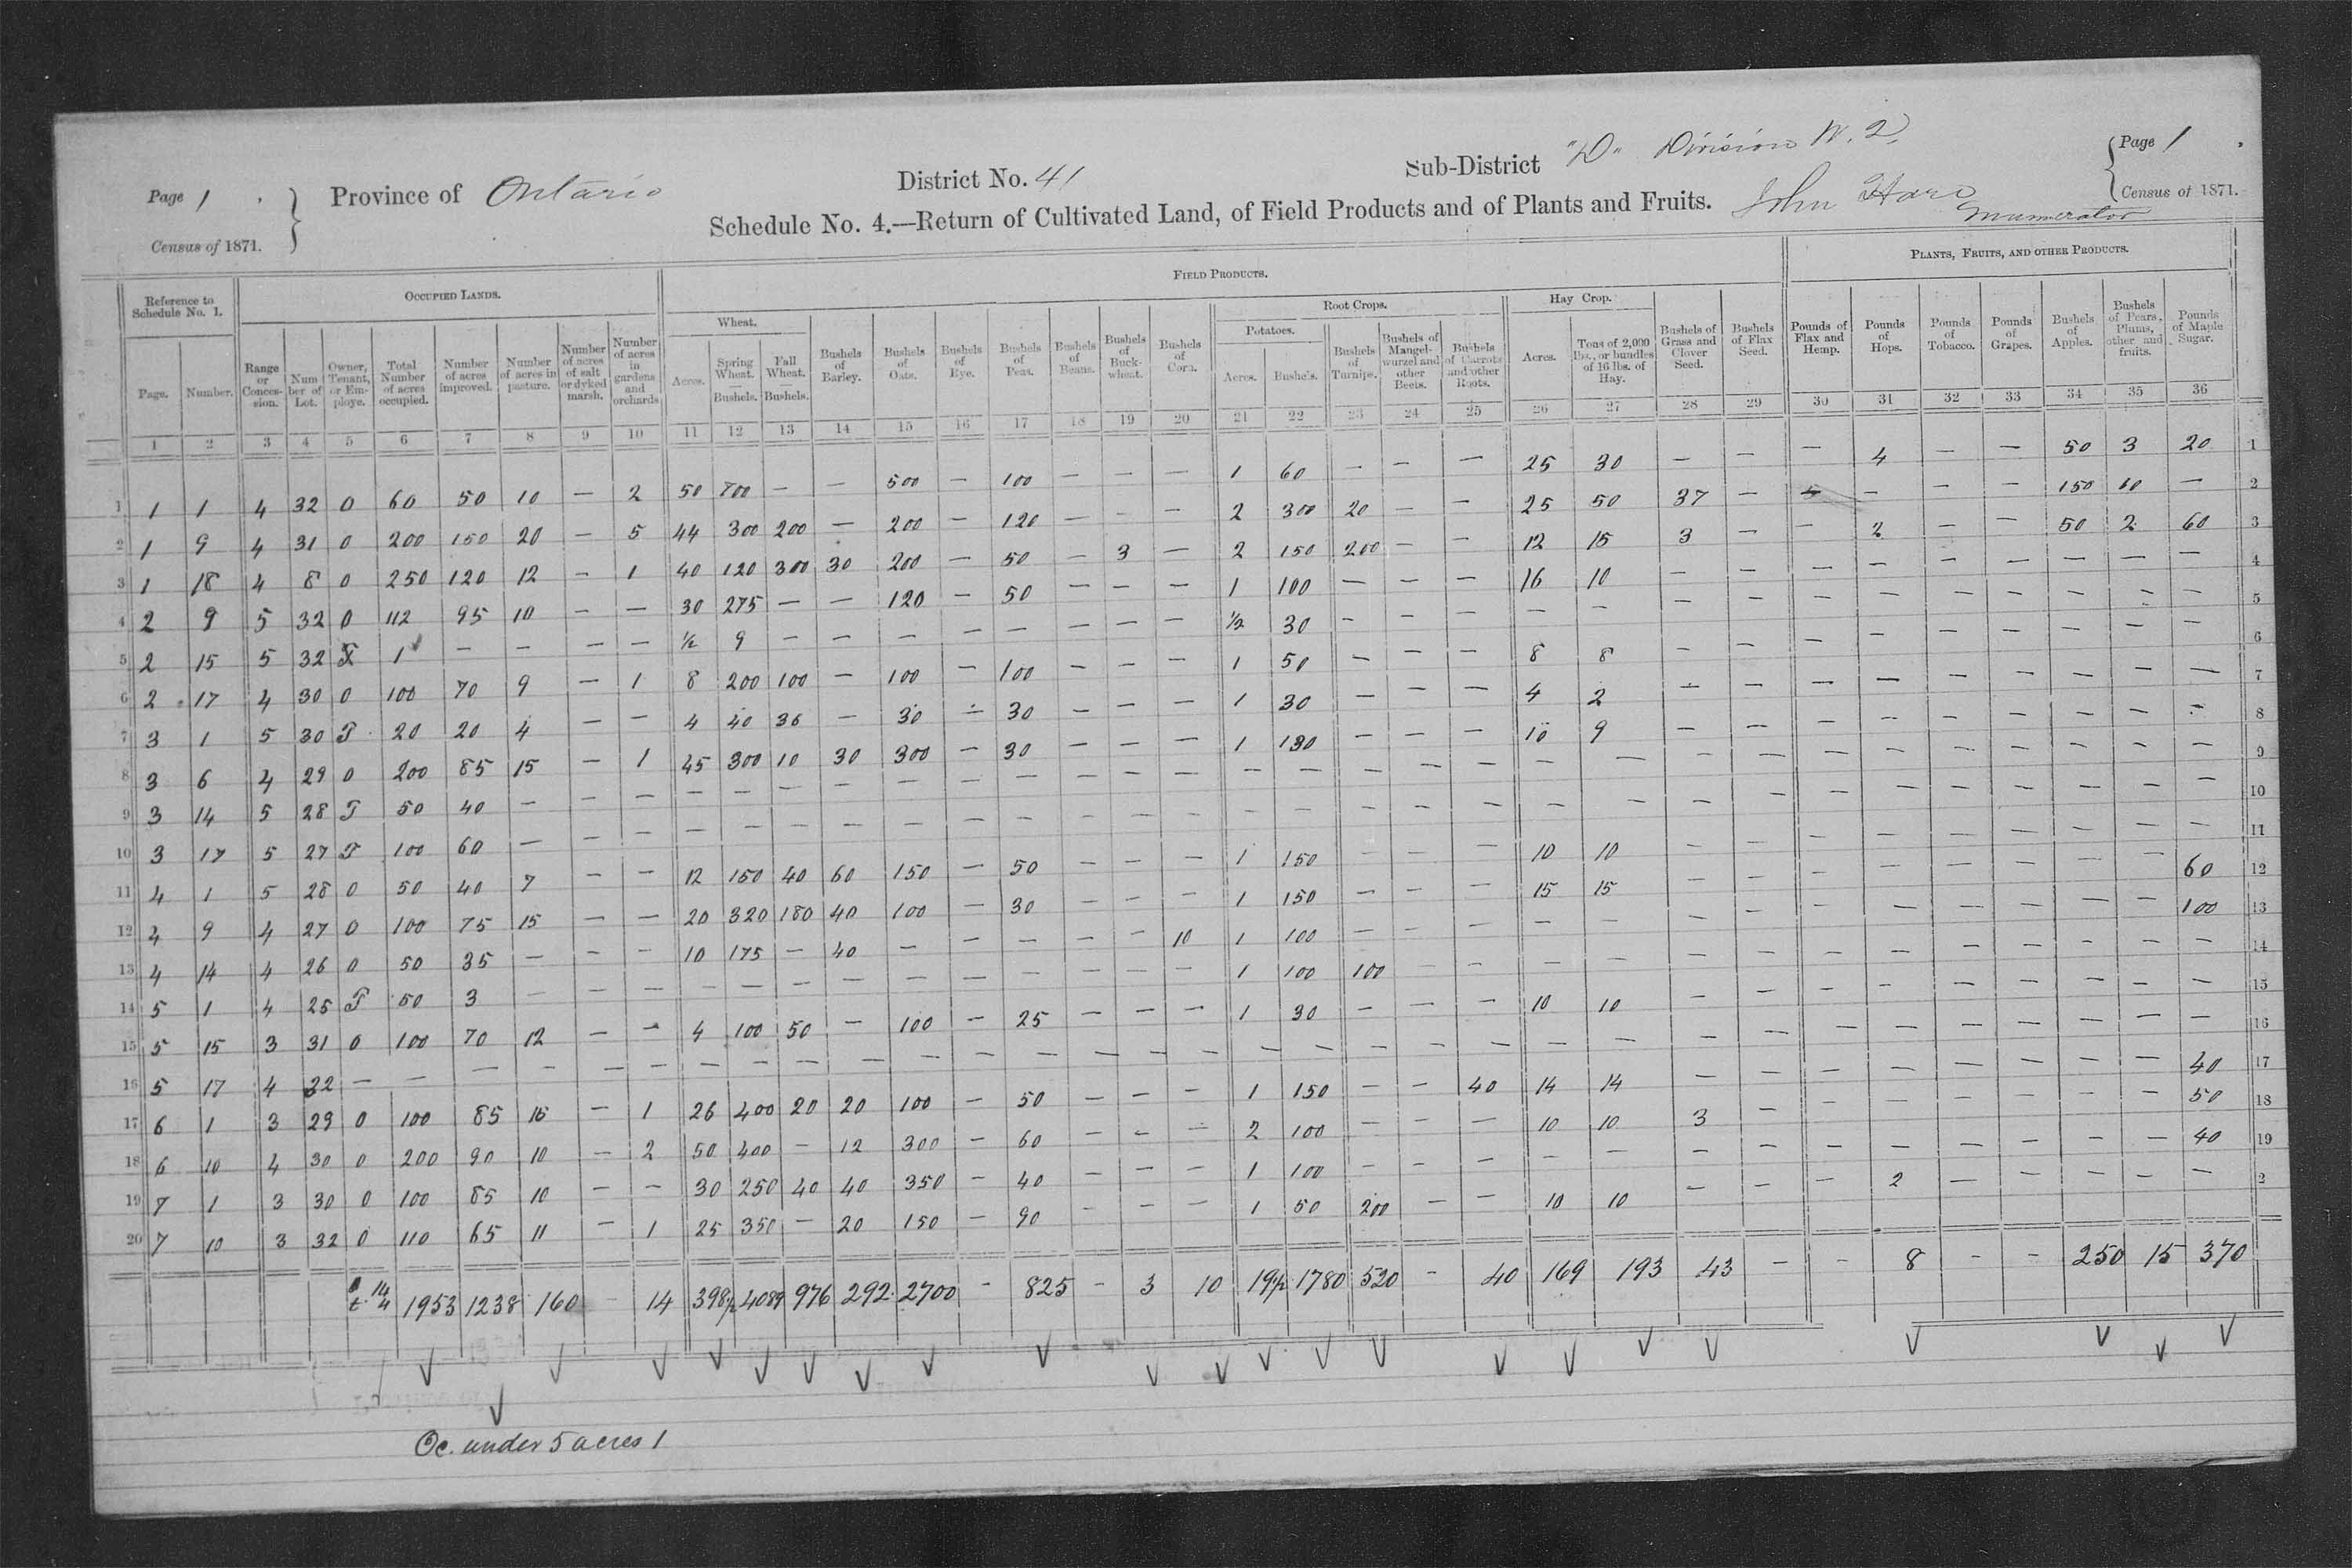 Page 1 . Province of Ontario District No. 41 Sub-District "D" Division N. 2, Page 1
Census of 1871. Schedule No. 4.—Return of Cultivated Land, of Field Products and of Plants and Fruits. John Enumerator Census of 1871.
Reference to Schedule No. 1. OCCUPIED LANDS. FIELD PRODUCTS. PLANTS, FRUITS, AND OTHER PRODUCTS.
Wheat. Root Crops. Hay Crop.
Potatoes.
Page. Number. Range or Conces-sion. Num-ber of Lot. Owner, Tenant, or Em-ploye. Total Number of acres occupied. Number of acres improved. Number of acres in pasture. Number of acres of salt or dyked marsh. Number of acres in gardens and orchards Acres. Spring Wheat. — Bushels. Fall Wheat. — Bushels. Bushels of Barley. Bushels of Oats. Bushels of Rye. Bushels of Peas. Bushels of Beans. Bushels of Buck-wheat. Bushels of Corn. Acres. Bushels. Bushels of Turnips. Bushels of Mangel-wurzel and other Beets. Bushels of Carrots and other Roots. Acres. Tons of 2,000 lbs., or bundles of 16 lbs. of Hay. Bushels of Grass and Clover Seed. Bushels of Flax Seed. Pounds of Flax and Hemp. Pounds of Hops. Pounds of Tobacco. Pounds of Grapes. Bushels of Apples. Bushels of Pears, Plums, other and fruits. Pounds of Maple Sugar.
1 2 3 4 5 6 7 8 9 10 11 12 13 14 15 16 17 18 19 20 21 22 23 24 25 26 27 28 29 30 31 32 33 34 35 36
1 1 1 4 32 O 60 50 10 — 2 50 700 — — 500 — 100 — — — 1 60 — — — 25 30 — — — 4 — — 50 3 20 1
2 1 9 4 31 O 200 150 20 — 5 44 300 200 — 200 — 120 — — — 2 300 20 — — 25 50 37 — — — — 150 10 — 2
3 1 18 4 8 O 250 120 12 — 1 40 120 300 30 200 — 50 — 3 — 2 150 200 — — 12 15 3 — — 2 — — 50 2 60 3
4 2 9 5 32 O 112 95 10 — — 30 275 — — 120 — 50 — — — 1 100 — — — 16 10 — — — — — — — — — 4
5 2 15 5 32 T 1 — — — — ½ 9 — — — — — — — — ½ 30 — — — — — — — — — — — — — — 5
6 2 17 4 30 O 100 70 9 — 1 8 200 100 — 100 — 100 — — — 1 50 — — — 8 8 — — — — — — — — — 6
7 3 1 5 30 T 20 20 4 — — 4 40 36 — 30 — 30 — — — 1 30 — — — 4 2 — — — — — — — — — 7
8 3 6 4 29 O 200 85 15 — 1 45 300 10 30 300 — 30 — — — 1 130 — — — 10 9 — — — — — — — — — 8
9 3 14 5 28 T 50 40 — — — — — — — — — — — — — — — — — — — — — — — — — — — — — 9
10 3 17 5 27 T 100 60 — — — — — — — — — — — — — — — — — — — — — — — — — — — — — 10
11 4 1 5 28 O 50 40 7 — — 12 150 40 60 150 — 50 — — — 1 150 — — — 10 10 — — — — — — — — — 11
12 4 9 4 27 O 100 75 15 — — 20 320 180 40 100 — 30 — — — 1 150 — — — 15 15 — — — — — — — — 60 12
13 4 14 4 26 O 50 35 — — — 10 175 — 40 — — — — — 10 1 100 — — — — — — — — — — — — — 100 13
14 5 1 4 25 T 50 3 — — — — — — — — — — — — — 1 100 100 — — — — — — — — — — — — — 14
15 5 15 3 31 O 100 70 12 — — 4 100 50 — 100 — 25 — — — 1 30 — — — 10 10 — — — — — — — — — 15
16 5 17 4 22 — — — — — — — — — — — — — — — — — — — — — — — — — — — — — — — — 16
17 6 1 3 29 O 100 85 15 — 1 26 400 20 20 100 — 50 — — — 1 150 — — 40 14 14 — — — — — — — — 40 17
18 6 10 4 30 O 200 90 10 — 2 50 400 — 12 300 — 60 — — — 2 100 — — — 10 10 3 — — — — — — — 50 18
19 7 1 3 30 O 100 85 10 — — 30 250 40 40 350 — 40 — — — 1 100 — — — — — — — — — — — — — 40 19
20 7 10 3 32 O 110 65 11 — 1 25 350 — 20 150 — 90 — — — 1 50 200 — — 10 10 — — — 2 — — — — — 2
o 14 t 4 1953 1238 160 — 14 398½ 4089 976 292 2700 — 825 — 3 10 19½ 1780 520 — 40 169 193 43 — — 8 — — 250 15 370
Oc. under 5 acres 1